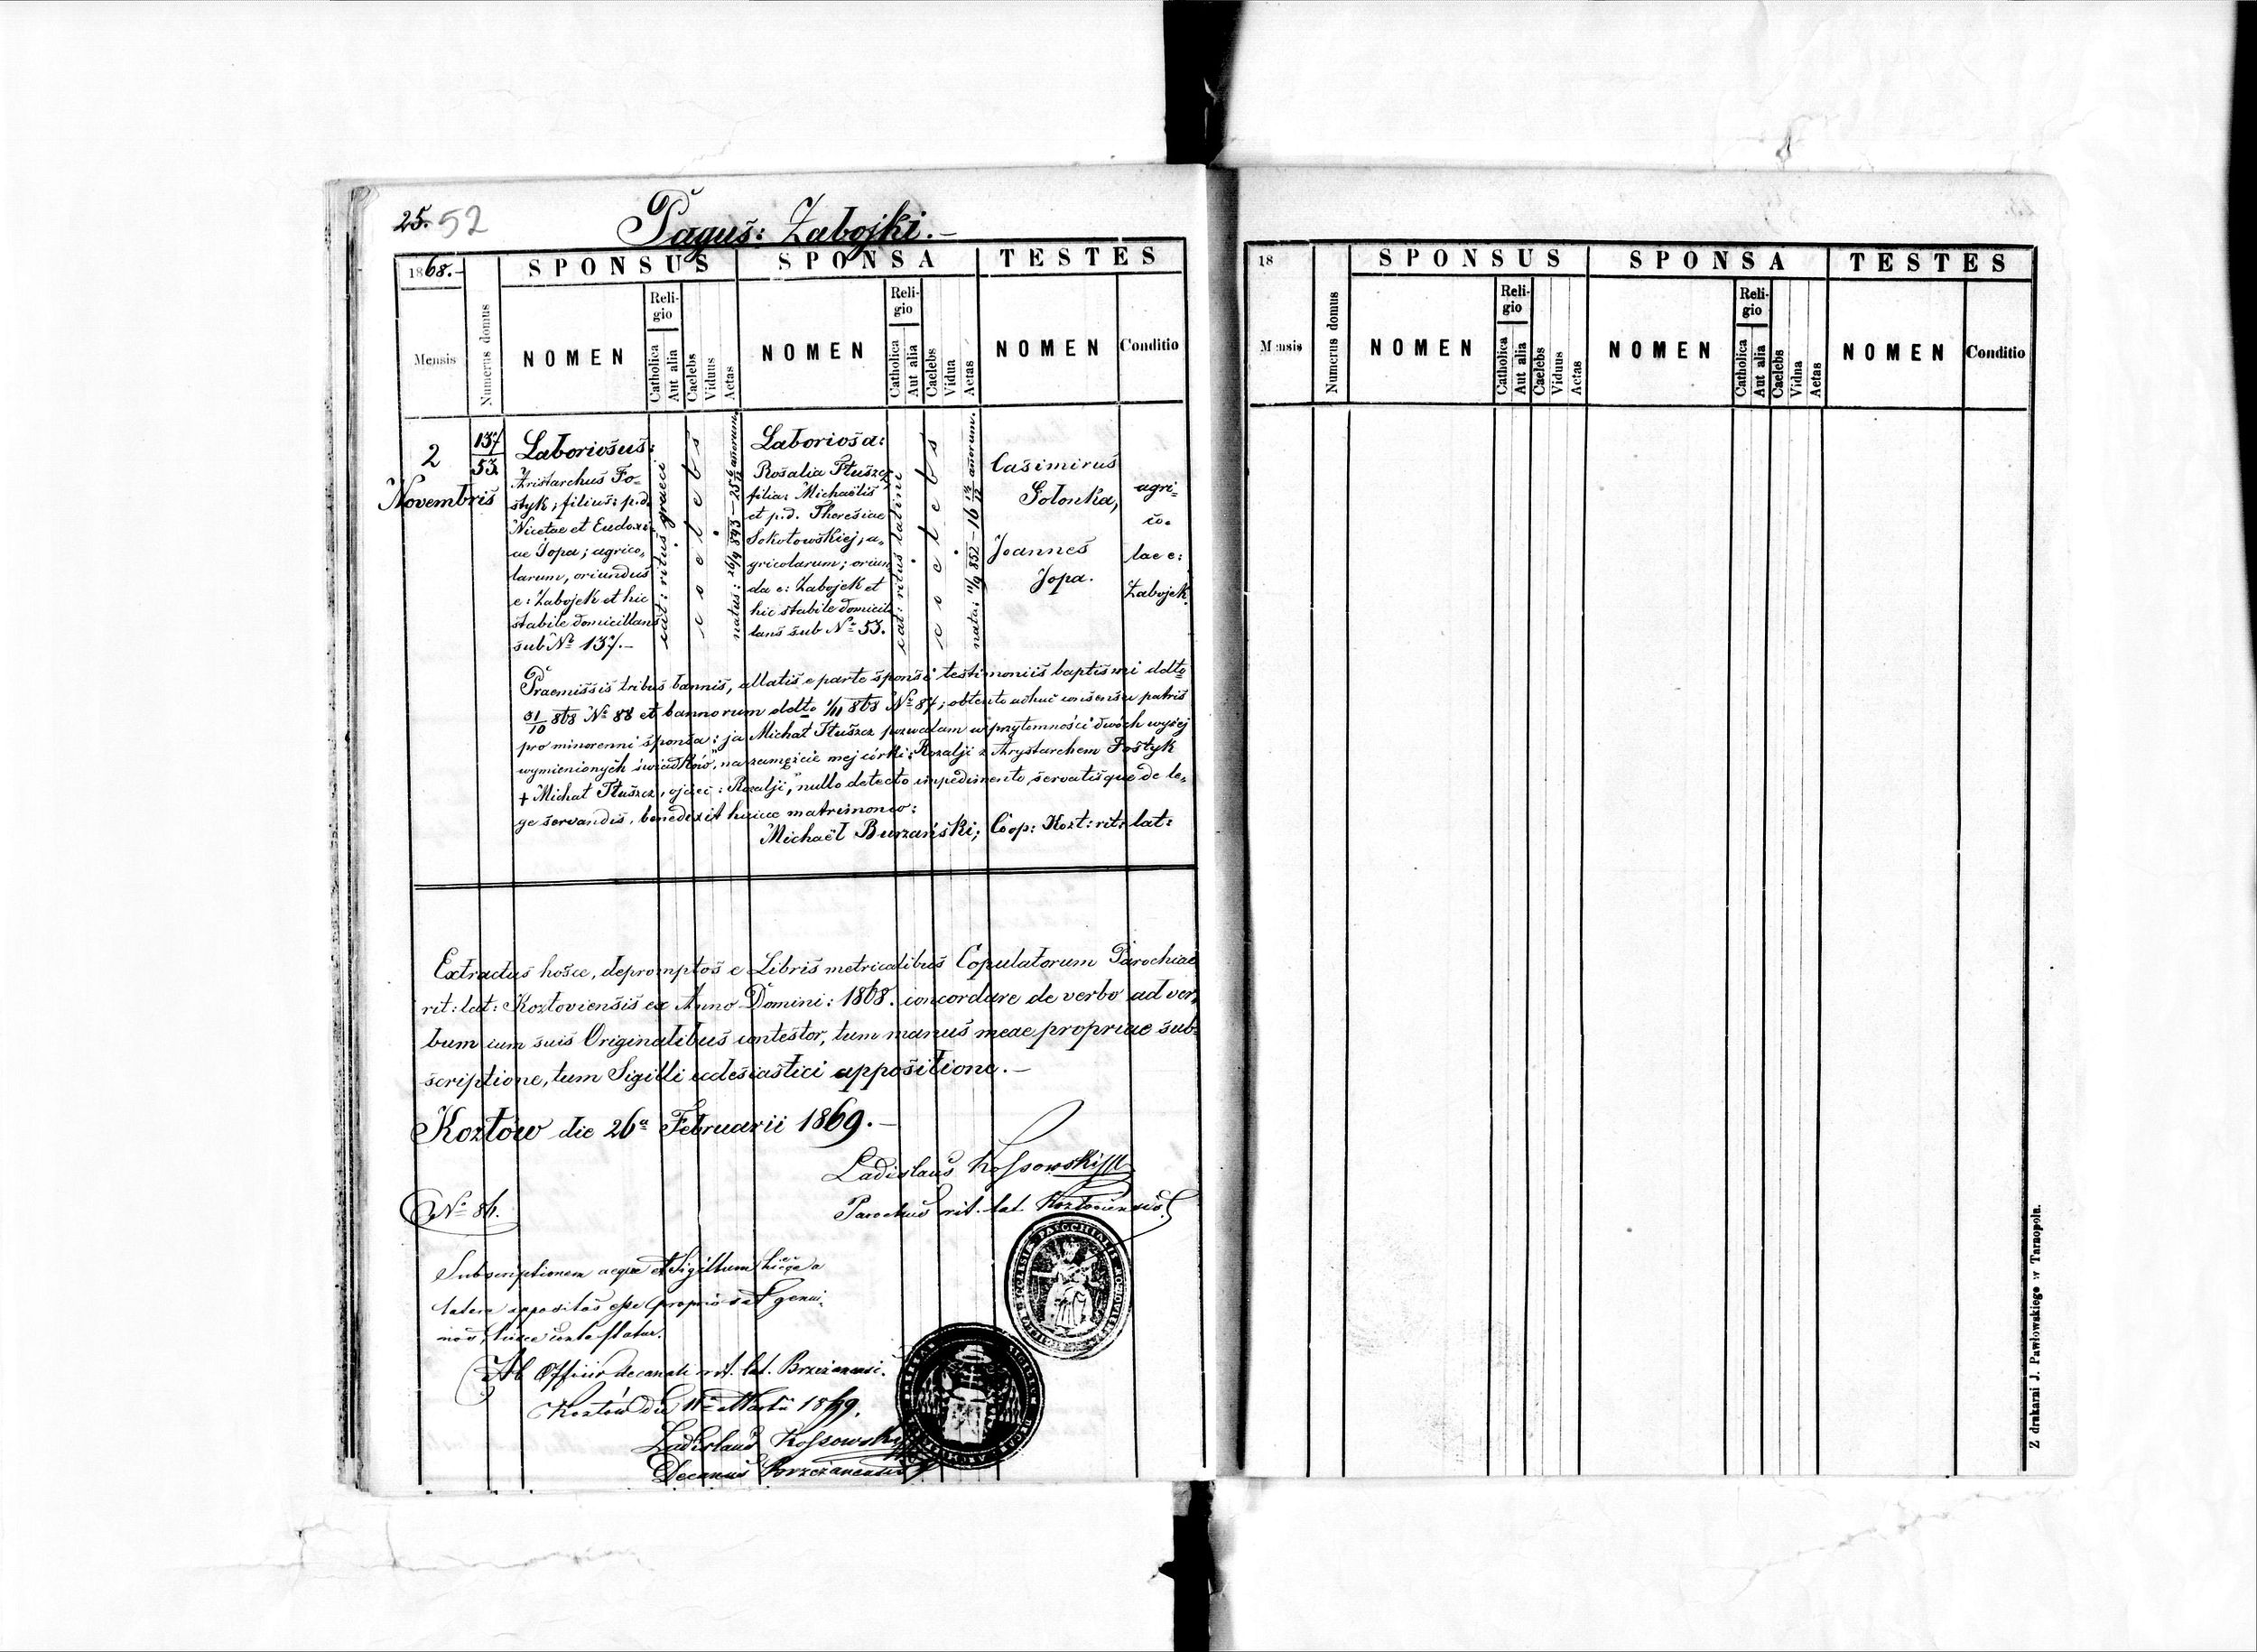 25. 52
Paguš: Zabojki.—
1868.—
SPONSUS
SPONSA
TESTES
Mensis
Numerus domus
NOMEN
Reli-
gio
Catholica
Aut alia
Caelebs
Viduus
Aetas
NOMEN
Reli-
gio
Catholica
Aut alia
Caelebs
Vidua
Aetas
NOMEN
Conditio
2
Novembris
137
53.
Laboriosus:
Aristarchus Fo-
styk; filius: p.d.
Nicetae et Eudoxi-
ae Jopa; agrico-
larum, oriundus
e: Zabojek et hic
stabile domicilians
sub No 137.—
cat: ritus graeci
coelebs
natus: 26/9 843 — 25 annorum.
Laboriosa:
Rosalia Tłuszcz
filia: Michaëlis
et p.d. Theresiae
Sokołowskiej; a-
gricolarum; oriun
da e: Zabojek et
hic stabile domicil
lans sub No 53.
cat: ritus latini
coelebs
nata: 11/9 852 — 16 annorum.
Casimirus
Golonka,
Joannes
Jopa.
agri-
co-
lae e:
Zabojek.
Praemissis tribus bannis, allatis e parte sponsi testimoniis baptismi ddto
31/10 868 No 88 et bannorum ddto 1/11 868 No 87; obtento adhuc consensu patris
pro minorenni sponsa: ja Michał Tłuszcz pozwalam w przytomności dwóch wyżej
wymienionych świadków, na zamęzcie mej córki: Rozalji z Arystarchem Fostyk
+ Michał Tłuszcz, ojciec: Rozalji," nullo detecto impedimento, servatisque de le-
ge servandis, benedixit huicce matrimonio:
Michaël Burzański; Coop: Kozt: rit: lat:
Extractus hosce, depromptos e Libris metricalibus Copulatorum Parochiae
rit: lat: Kozłoviensis ex Anno Domini: 1868. concordare de verbo ad ver-
bum cum suis Originalibus contestor, tum manus meae propriae sub-
scriptione, tum Sigilli ecclesiastici appositione.—
Kozłów die 26a Februarii 1869.—
Ladislaus Kossowski
Parochus rit. lat. Kozłoviensis
No 86.
Subscriptionem aeque et Sigillum hicce a
latere appositas esse proprias et genui-
nas, hisce contestatur.
Ab Officio decanali rit. lat. Brzezanensi.
Kozłów die 11a Martii 1869.
Ladislaus Kossowski
Decanus Brzezanensis
18
SPONSUS
SPONSA
TESTES
Mensis
Numerus domus
NOMEN
Reli-
gio
Catholica
Aut alia
Caelebs
Viduus
Aetas
NOMEN
Reli-
gio
Catholica
Aut alia
Caelebs
Vidua
Aetas
NOMEN
Conditio
Z drukarni J. Pawłowskiego w Tarnopolu.